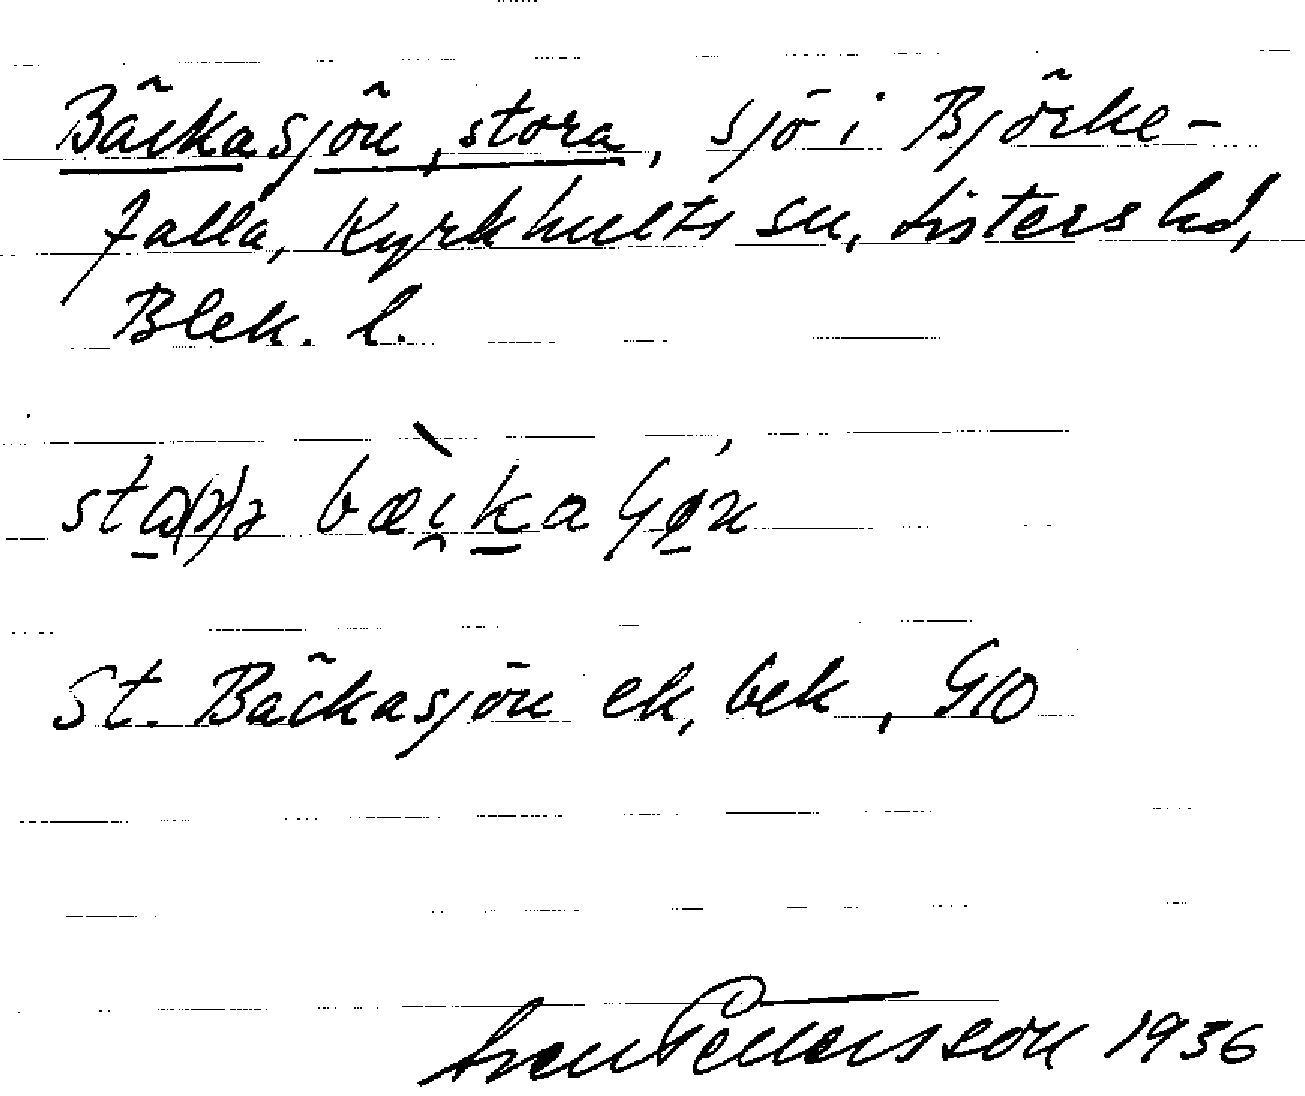 Bäckasjön, stora, sjö i Björke-
falla, Kyrkhults sn, Listers hd,
Blek. l.
St. Bäckasjön ek, bek, GK
Sven Pettersson 1936